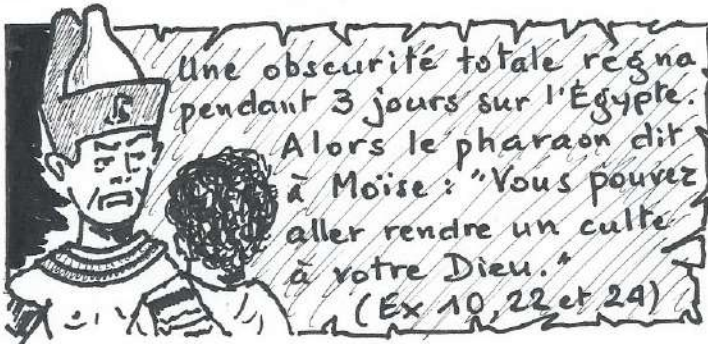 Une obscurité totale regna
pendant 3 jours sur l'Égypte.
Alors le pharaon dit
à Moïse : "Vous pouvez
aller rendre un culte
à votre Dieu."
(Ex 10, 22 et 24)